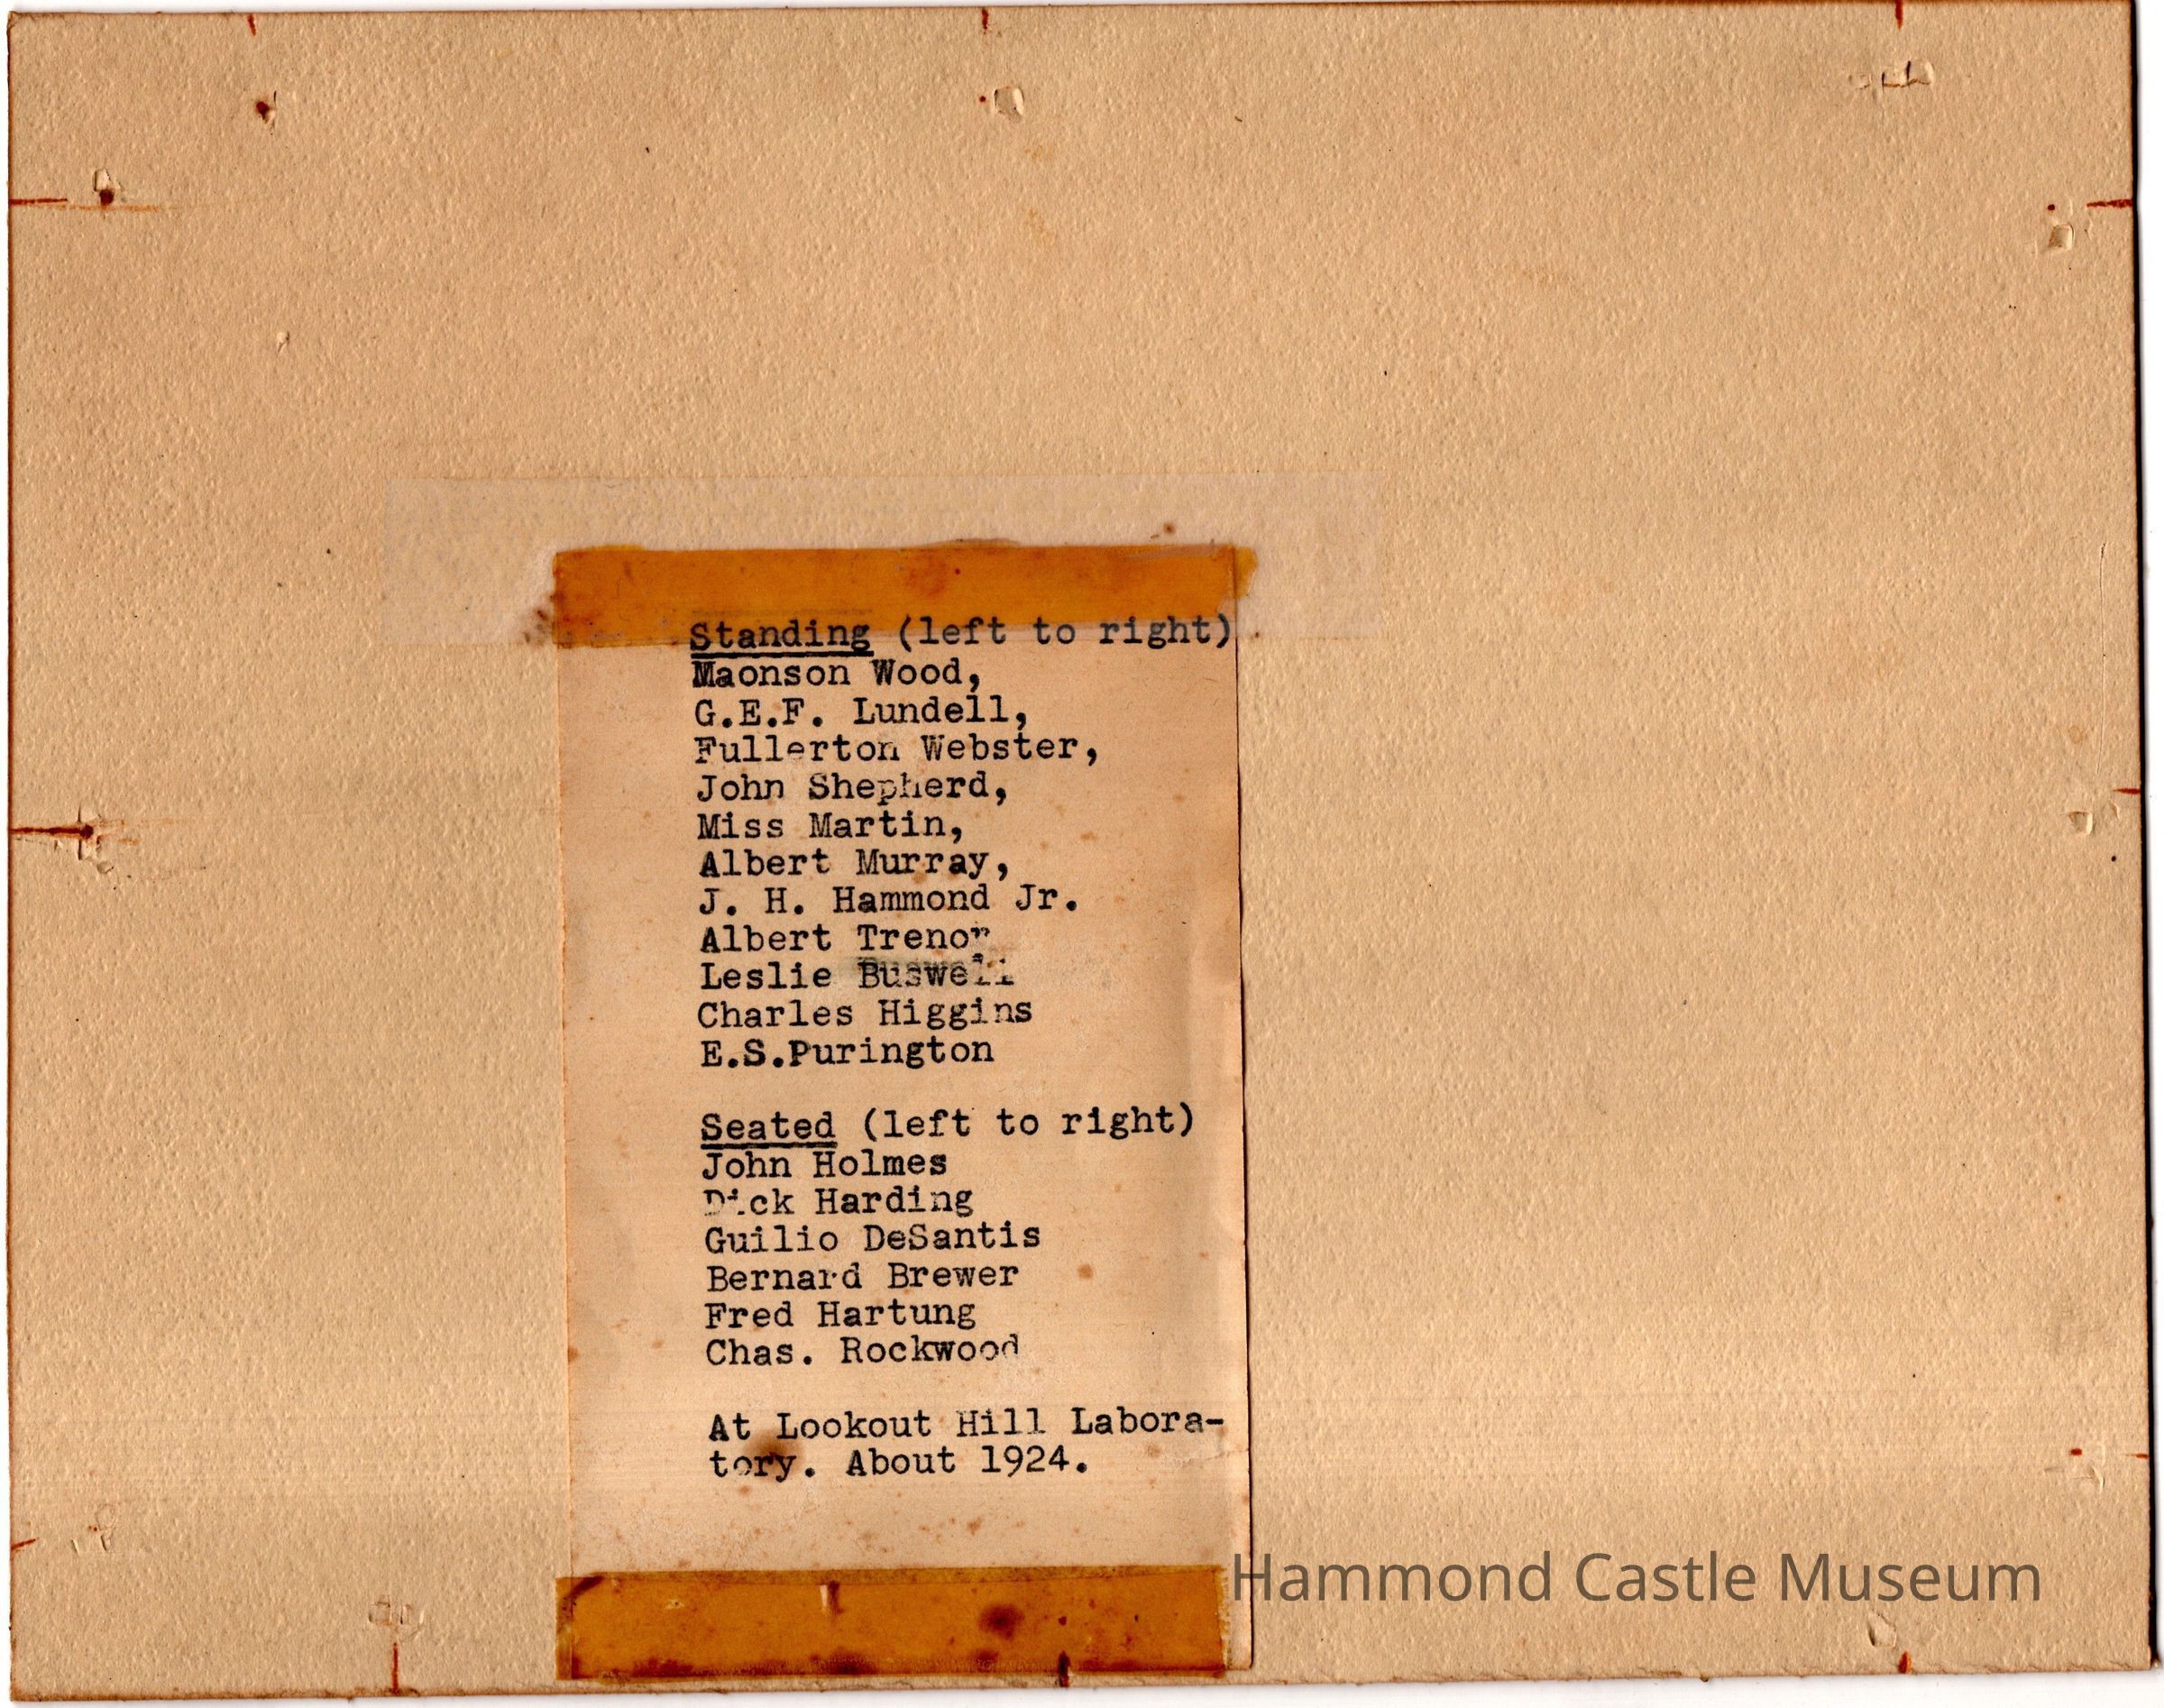 Standing (left to right)
Maonson Wood,
G.E.F. Lundell,
Fullerton Webster,
John Shepherd,
Miss Martin,
Albert Murray,
J. H. Hammond Jr.
Albert Trenor
Leslie Buswell
Charles Higgins
E.S.Purington
Seated (left to right)
John Holmes
Dick Harding
Guilio DeSantis
Bernard Brewer
Fred Hartung
Chas. Rockwood
At Lookout Hill Labora-
tory. About 1924.
Hammond Castle Museum